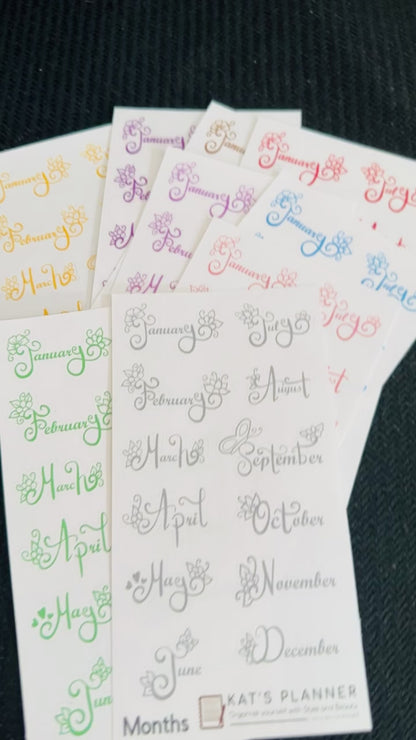 January
February
March
April
January
January
Januar
February
January
Februa
January
January
July
January
July
July
January
February
March
April
May
Jun
January July
February August
March September
April October
May November
June December
Months
KAT'S PLANNER
Organize yourself with Style and Beauty